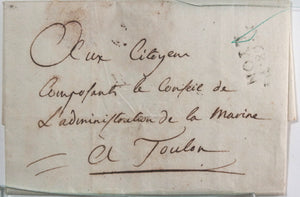 Aux Citoyens
Composants le Conseil de
L'administration de la Marine
A Toulon